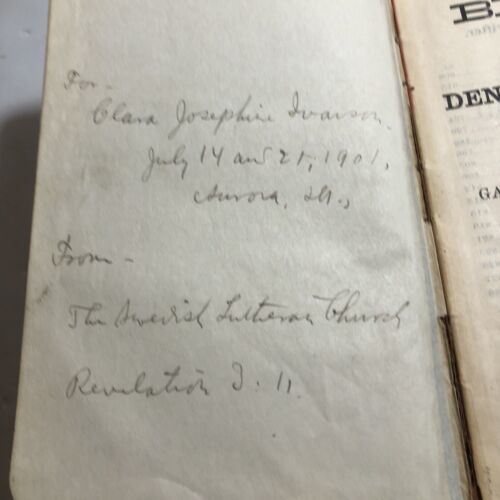 For-
Clara Josephine Ivarson.
July 14 and 21, 1901,
Aurora, Ill.,
From-
The Swedish Lutheran Church
Revelation 3. 11.
B
DEN
GA